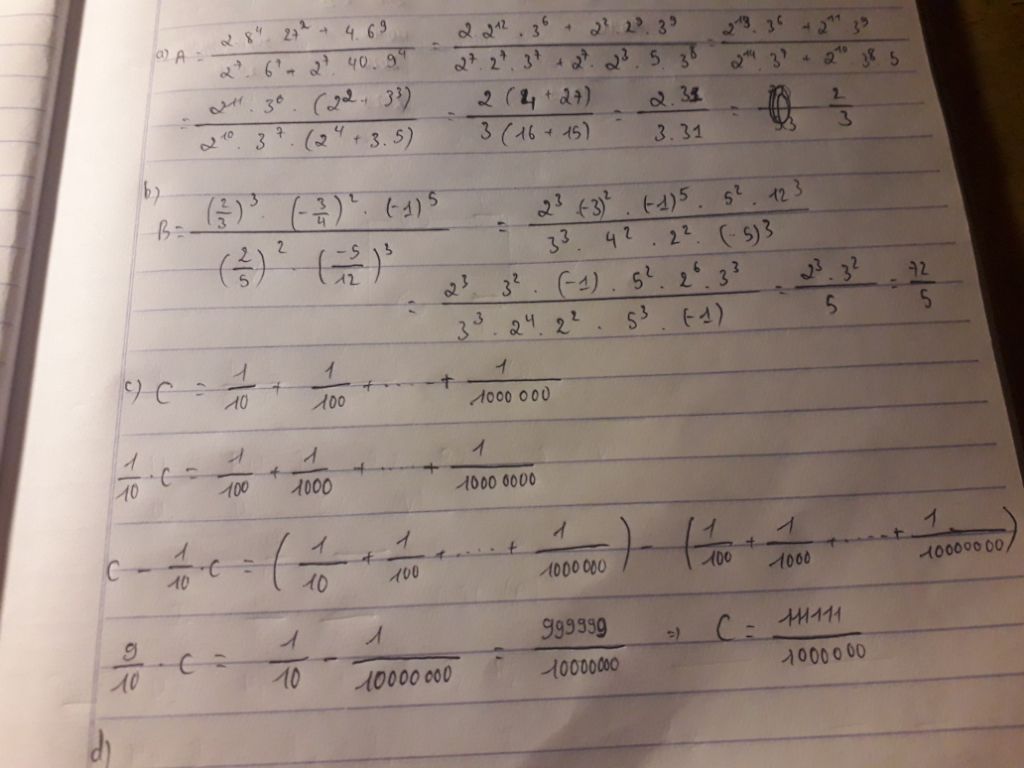 a) A = \frac{2 \cdot 8^4 \cdot 27^2 + 4 \cdot 6^9}{2^7 \cdot 6^7 + 2^7 \cdot 40 \cdot 9^4} = \frac{2 \cdot 2^{12} \cdot 3^6 + 2^2 \cdot 2^9 \cdot 3^9}{2^7 \cdot 2^7 \cdot 3^7 + 2^7 \cdot 2^3 \cdot 5 \cdot 3^8} = \frac{2^{13} \cdot 3^6 + 2^{11} \cdot 3^9}{2^{14} \cdot 3^7 + 2^{10} \cdot 3^8 \cdot 5}
= \frac{2^{11} \cdot 3^6 \cdot (2^2 + 3^3)}{2^{10} \cdot 3^7 \cdot (2^4 + 3.5)} = \frac{2(4 + 27)}{3(16 + 15)} = \frac{2.31}{3.31} = \frac{2}{3}
b) B = \frac{(\frac{2}{3})^3 \cdot (-\frac{3}{4})^2 \cdot (-1)^5}{(\frac{2}{5})^2 \cdot (\frac{-5}{12})^3} = \frac{2^3 \cdot (-3)^2 \cdot (-1)^5 \cdot 5^2 \cdot 12^3}{3^3 \cdot 4^2 \cdot 2^2 \cdot (-5)^3}
= \frac{2^3 \cdot 3^2 \cdot (-1) \cdot 5^2 \cdot 2^6 \cdot 3^3}{3^3 \cdot 2^4 \cdot 2^2 \cdot 5^3 \cdot (-1)} = \frac{2^3 \cdot 3^2}{5} = \frac{72}{5}
c) C = \frac{1}{10} + \frac{1}{100} + ..... + \frac{1}{1000 000}
\frac{1}{10} \cdot C = \frac{1}{100} + \frac{1}{1000} + ..... + \frac{1}{1000 0000}
C - \frac{1}{10} \cdot C = (\frac{1}{10} + \frac{1}{100} + ..... + \frac{1}{1000 000}) - (\frac{1}{100} + \frac{1}{1000} + ..... + \frac{1}{10000000})
\frac{9}{10} \cdot C = \frac{1}{10} - \frac{1}{10000 000} = \frac{999999}{10000000} => C = \frac{111111}{1000000}
d)